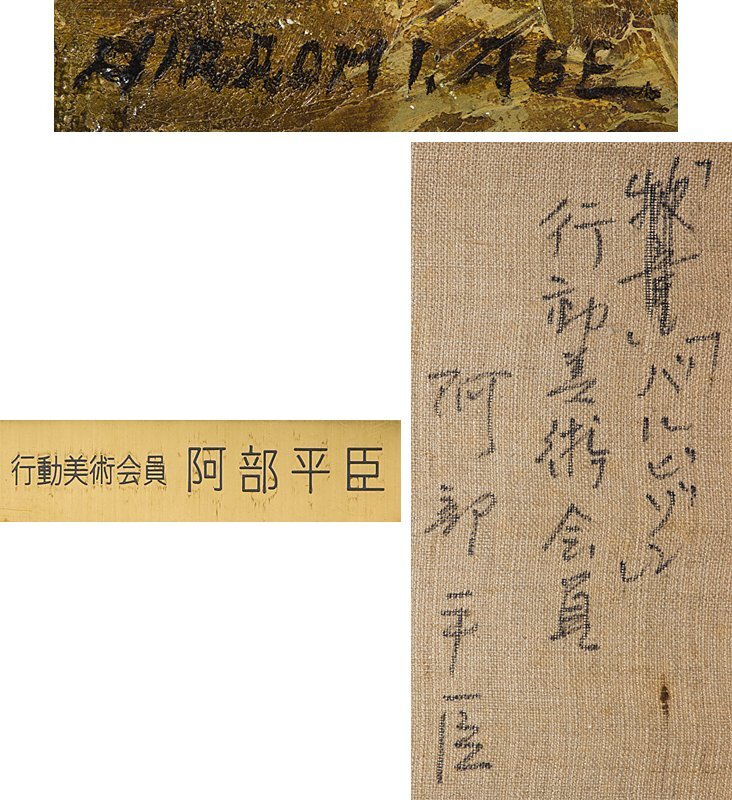 HIRAOMI. ABE
「牧童」「バルビゾン」
行動美術会員
阿部平臣
行動美術会員 阿部平臣